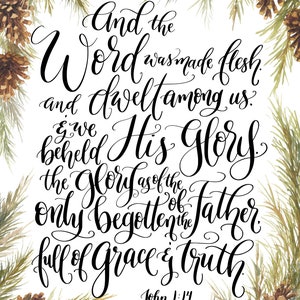 And the
Word was made flesh
and dwelt among us.
& we
beheld His Glory,
the Glory as of the
only begotten of the Father.
full of Grace & truth.
John 1:14